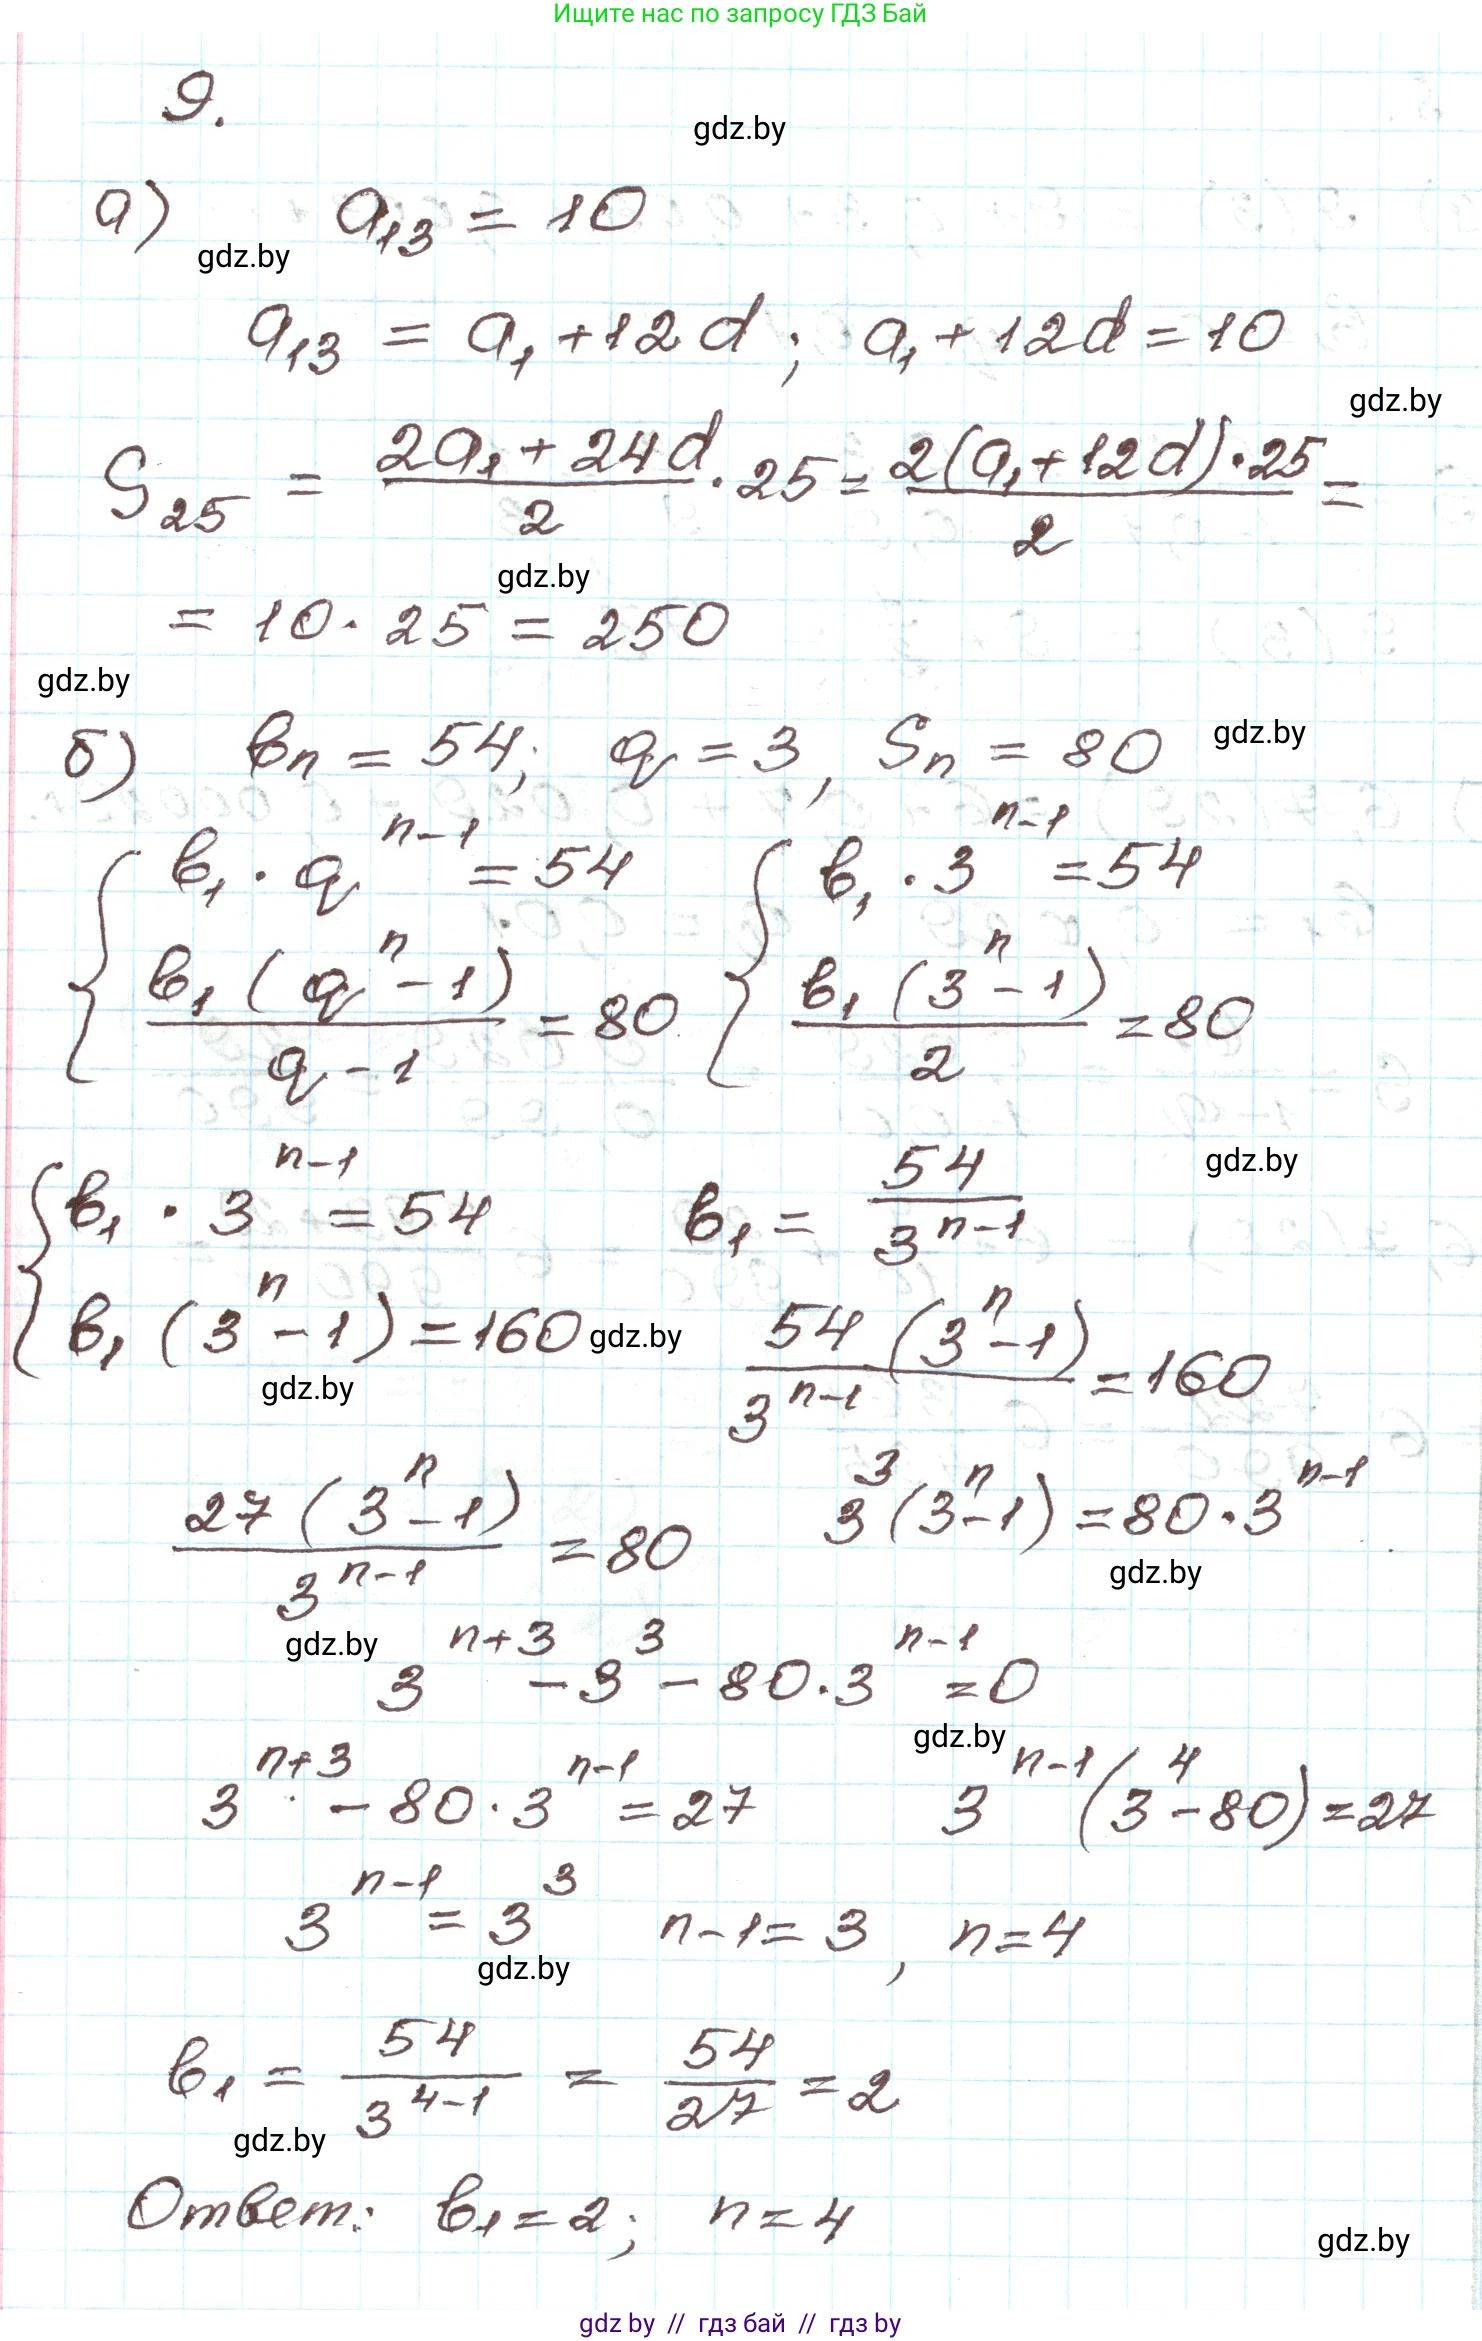 Ищите нас по запросу ГДЗ Бай
9.
gdz.by
а) a₁₃ = 10
gdz.by
a₁₃ = a₁ + 12d ; a₁ + 12d = 10
gdz.by
S₂₅ = (2a₁ + 24d)/2 · 25 = (2(a₁ + 12d) · 25)/2 =
gdz.by
= 10 · 25 = 250
gdz.by
б) bₙ = 54; q = 3, Sₙ = 80
gdz.by
{ b₁ · q^(n-1) = 54 { b₁ · 3^(n-1) = 54
b₁(qⁿ - 1)/(q - 1) = 80 b₁(3ⁿ - 1)/2 = 80
{ b₁ · 3^(n-1) = 54 b₁ = 54/3^(n-1)
gdz.by
b₁(3ⁿ - 1) = 160 gdz.by 54(3ⁿ - 1)/3^(n-1) = 160
gdz.by
27(3ⁿ - 1)/3^(n-1) = 80 3³(3ⁿ - 1) = 80 · 3^(n-1)
gdz.by
gdz.by
3^(n+3) - 3³ - 80 · 3^(n-1) = 0
gdz.by
3^(n+3) - 80 · 3^(n-1) = 27 3^(n-1)(3⁴ - 80) = 27
3^(n-1) = 3³ n - 1 = 3, n = 4
gdz.by
b₁ = 54/3^(4-1) = 54/27 = 2
gdz.by
Ответ: b₁ = 2; n = 4
gdz.by
gdz by // гдз бай // гдз by